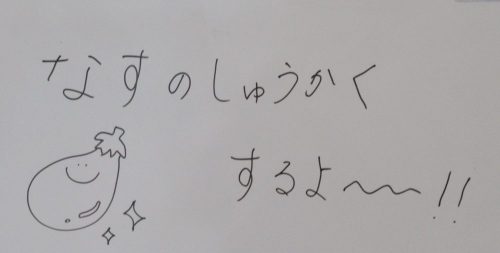 なすのしゅうかく
するよ〜〜!!